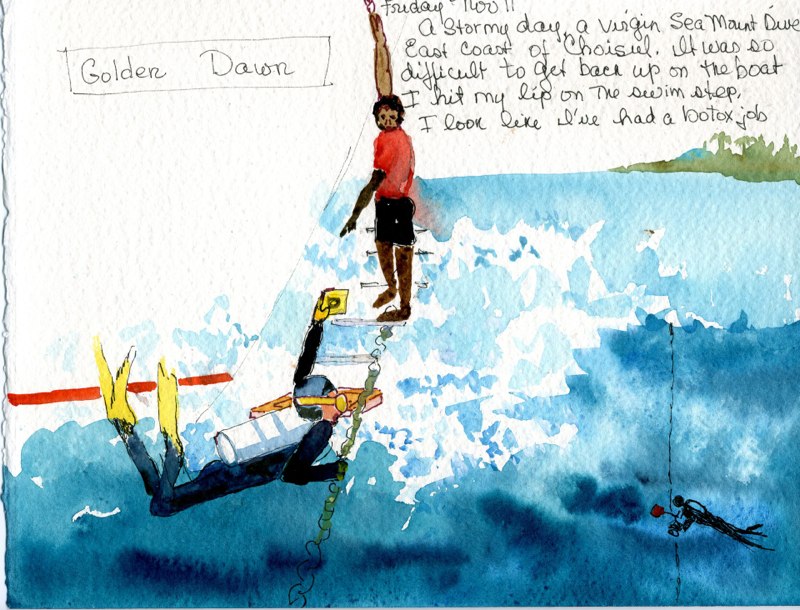 Golden Dawn
Friday Nov 11
A Stormy day, a virgin Sea Mount Dive
East coast of Choisiul. It was so
difficult to get back up on the boat
I hit my lip on the swim step.
I look like I've had a botox job